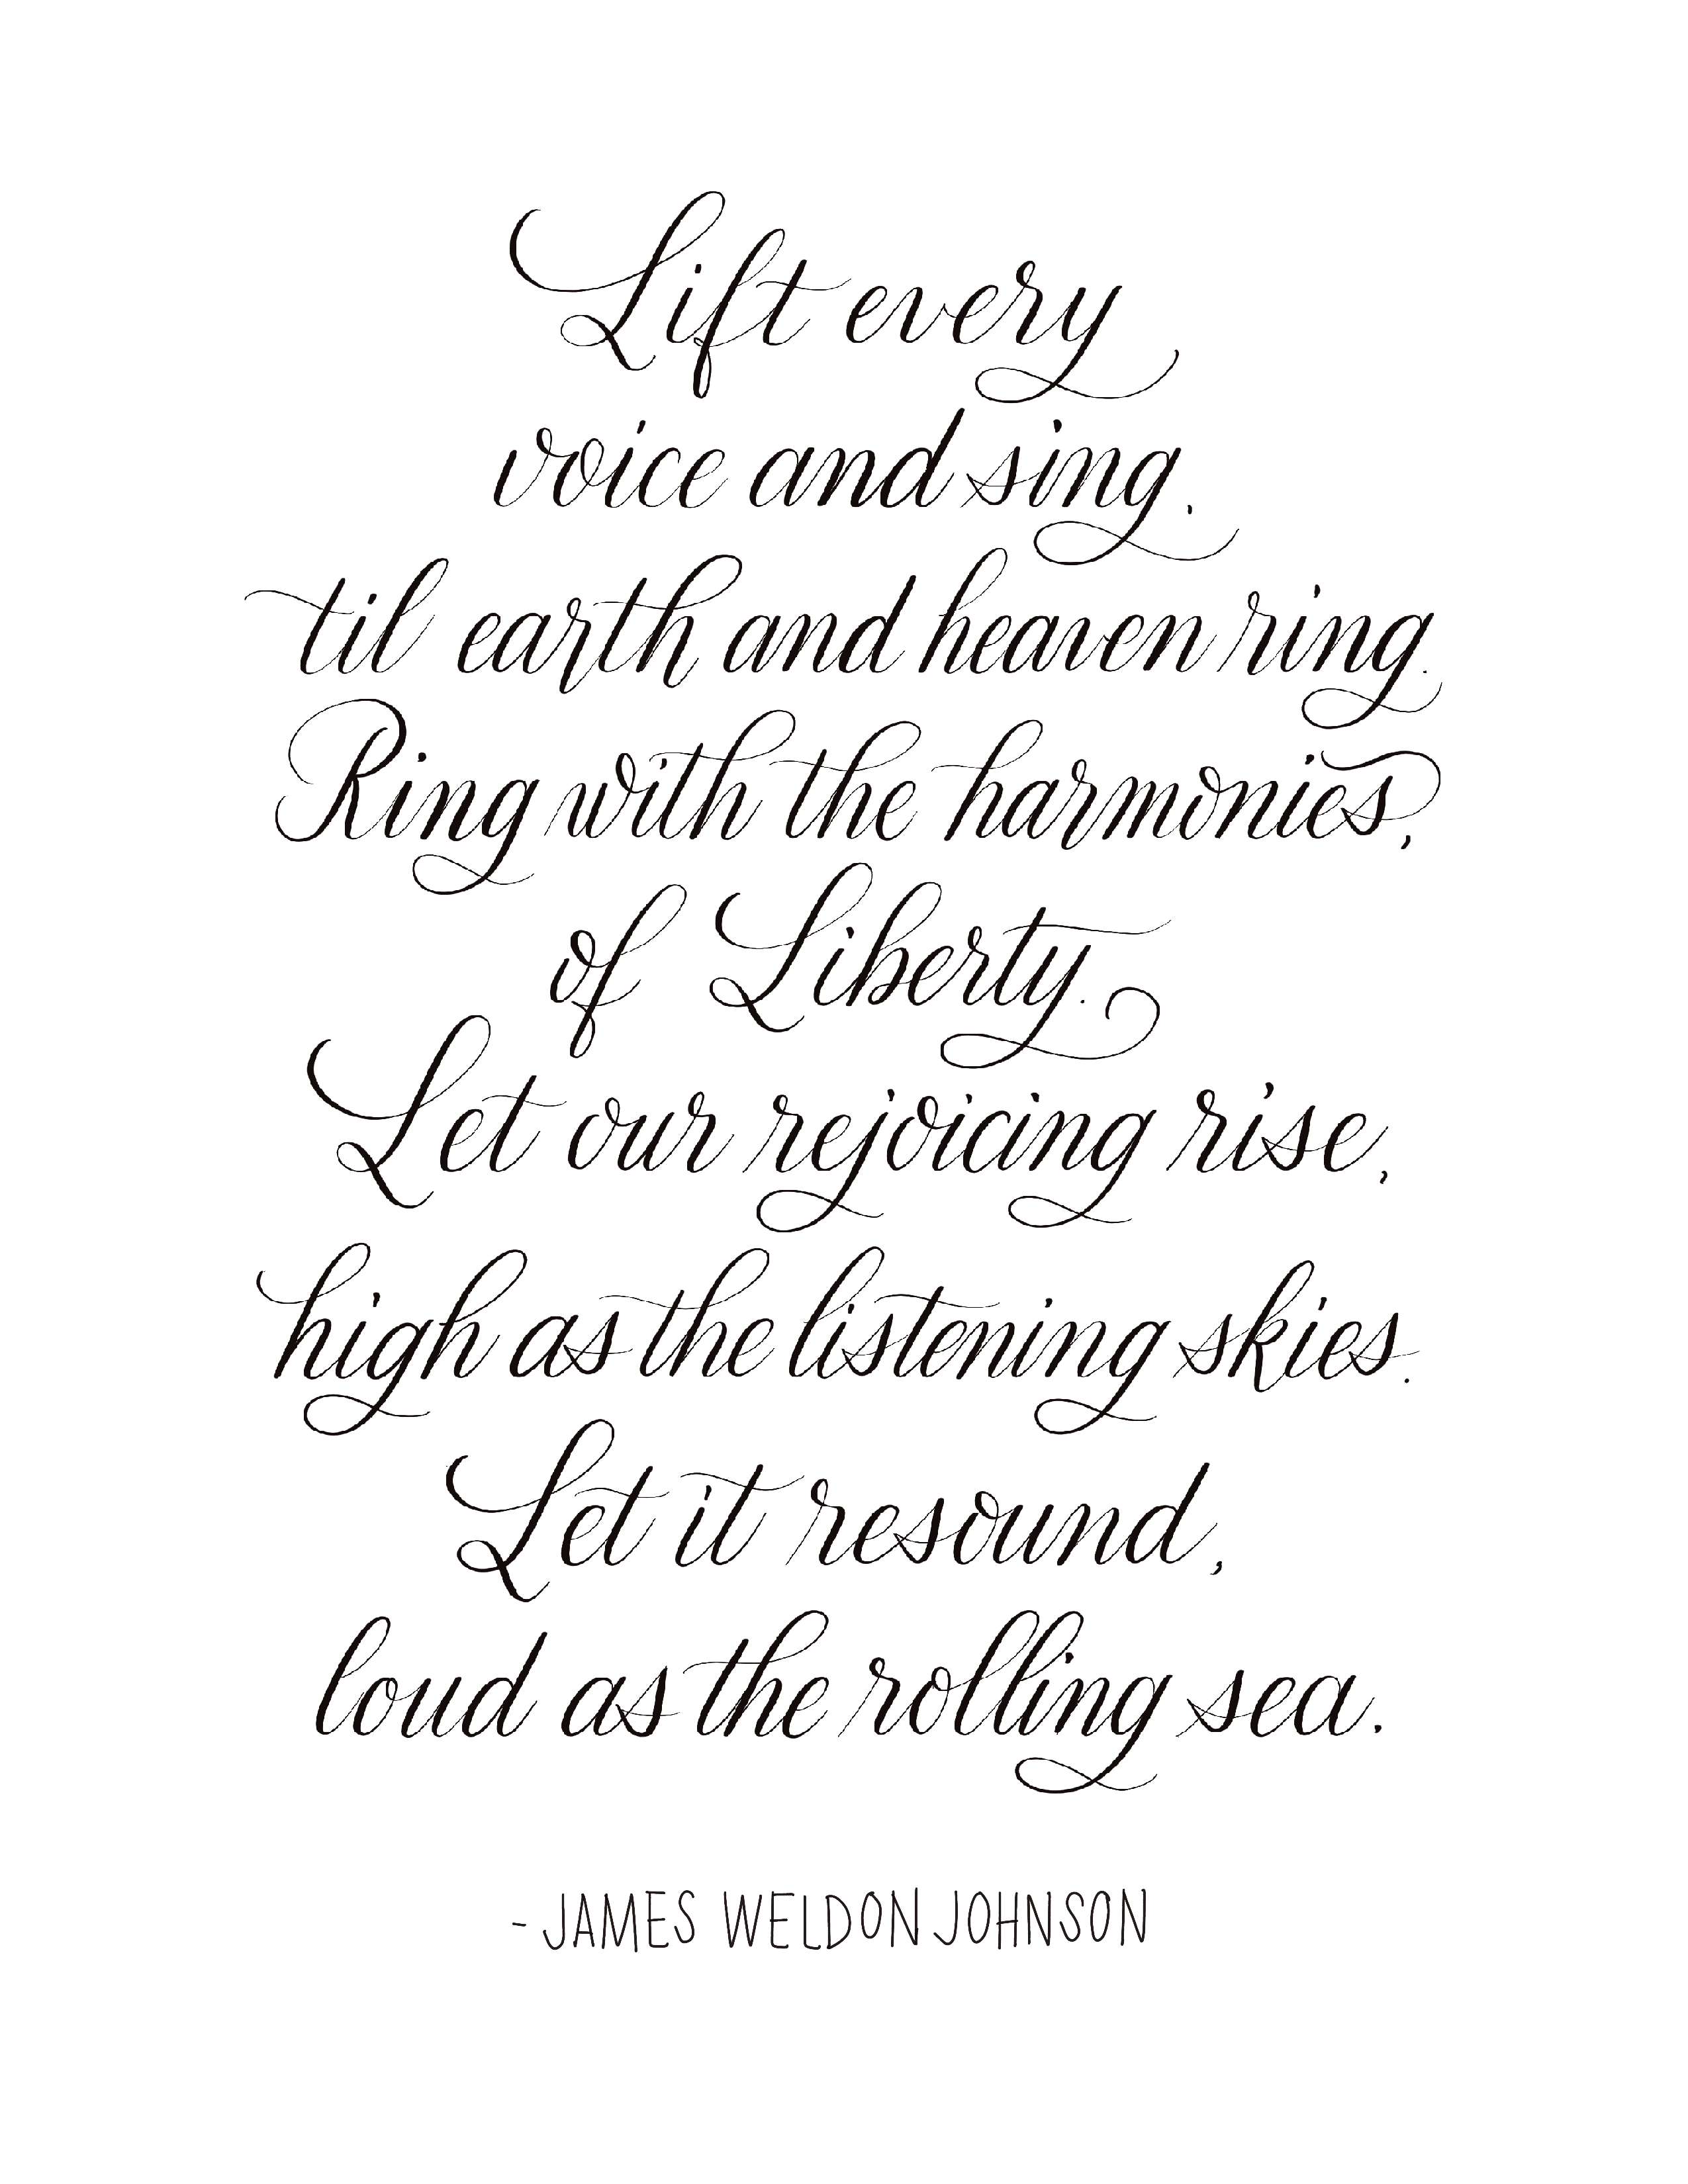 Lift every
voice and sing.
til earth and heaven ring.
Ring with the harmonies,
of Liberty.
Let our rejoicing rise,
high as the listening skies.
Let it resound,
loud as the rolling sea.
- JAMES WELDON JOHNSON